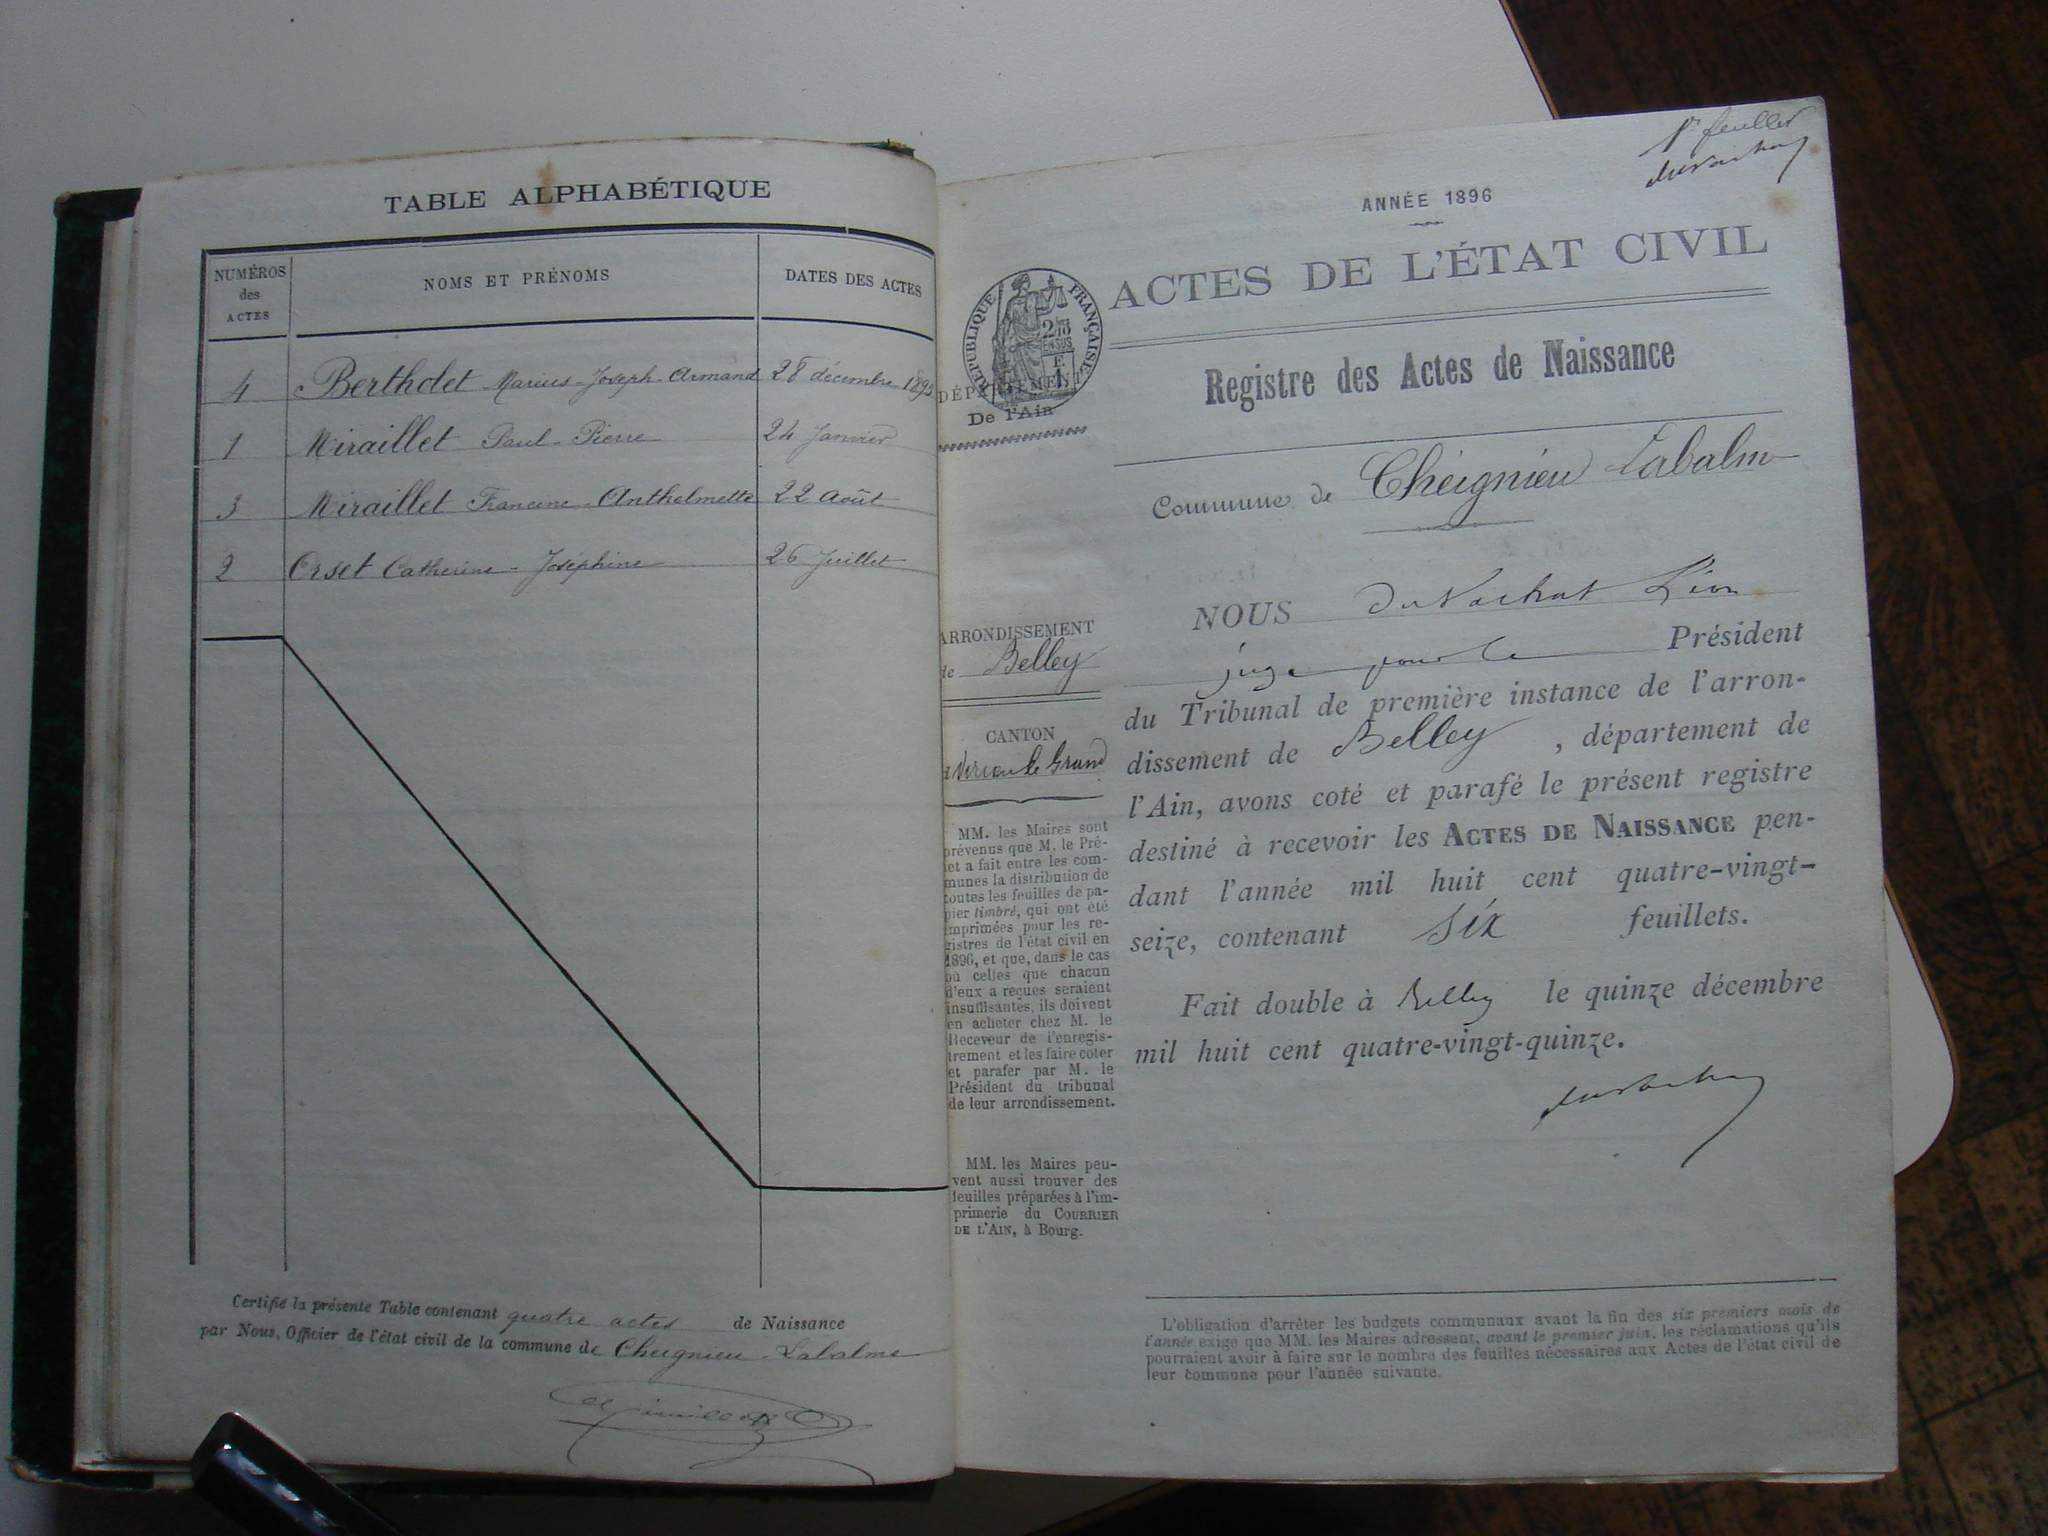 TABLE ALPHABÉTIQUE
NUMÉROS
des
ACTES
NOMS ET PRÉNOMS
DATES DES ACTES
4 Bertholet Marius-Joseph-Armand 28 décembre 1895
1 Miraillet Paul-Pierre 24 Janvier
3 Miraillet Francine-Anthelmette 22 Août
2 Orset Catherine-Joséphine 26 Juillet
Certifié la présente Table contenant quatre actes de Naissance
par Nous, Officier de l'état civil de la commune de Cheignieu-Labalme
1er feuillet
duVachat
ANNÉE 1896
ACTES DE L'ÉTAT CIVIL
RÉPUBLIQUE FRANÇAISE
DÉPARTEMENT
De l'Ain
Registre des Actes de Naissance
Commune de Cheignieu Labalme
ARRONDISSEMENT
de Belley
CANTON
Virieu le Grand
MM. les Maires sont
prévenus que M. le Pré-
fet a fait entre les com-
munes la distribution de
toutes les feuilles de pa-
pier timbré, qui ont été
imprimées pour les re-
gistres de l'état civil en
1896, et que, dans le cas
où celles que chacun
d'eux a reçues seraient
insuffisantes, ils doivent
en acheter chez M. le
Receveur de l'enregis-
trement et les faire coter
et parafer par M. le
Président du tribunal
de leur arrondissement.
MM. les Maires peu-
vent aussi trouver des
feuilles préparées à l'im-
primerie du COURRIER
DE L'AIN, à Bourg.
NOUS DuVachat Léon
juge pour le Président
du Tribunal de première instance de l'arron-
dissement de Belley, département de
l'Ain, avons coté et parafé le présent registre
destiné à recevoir les ACTES DE NAISSANCE pen-
dant l'année mil huit cent quatre-vingt-
seize, contenant six feuillets.
Fait double à Belley le quinze décembre
mil huit cent quatre-vingt-quinze.
duVachat
L'obligation d'arrêter les budgets communaux avant la fin des six premiers mois de
l'année exige que MM. les Maires adressent, avant le premier juin, les réclamations qu'ils
pourraient avoir à faire sur le nombre des feuilles nécessaires aux Actes de l'état civil de
leur commune pour l'année suivante.